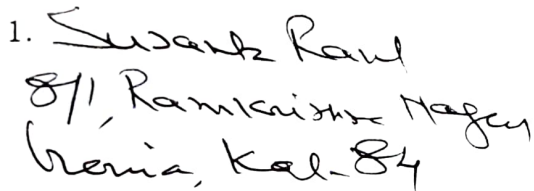 1. Susanta Raul
8/1, Ramkrishna Nagar
Garia, Kol-84